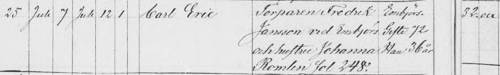 25 Juli 7 Juli 12 1 Carl Eric Torparen Fredrik Enbjörs- 32
Jansson vid Enbjörs Gifte 72
och hustru Johanna 36 år
fol 248.